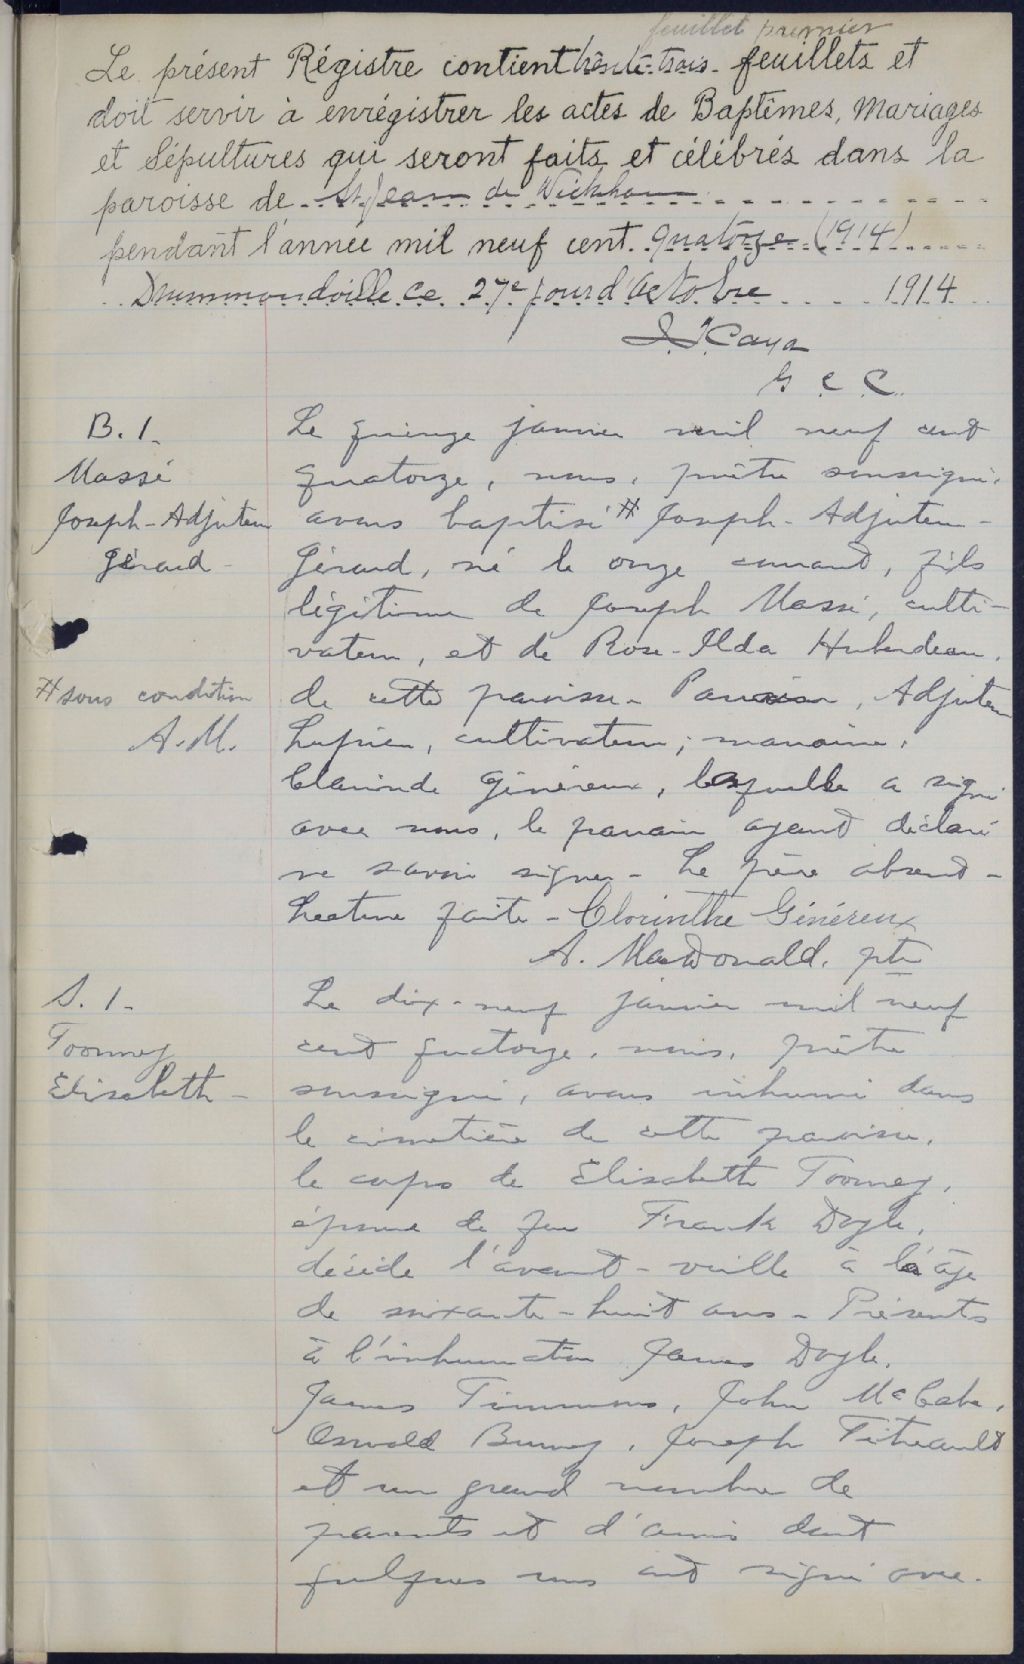 feuillet premier
Le présent Régistre contient trente-trois feuillets et
doit servir à enrégistrer les actes de Baptêmes, Mariages
et Sépultures qui seront faits et célébrés dans la
paroisse de St Jean de Wickham
pendant l'année mil neuf cent quatorze (1914)
Drummondville ce 27e jour d'Octobre 1914
Caya
G C C
B. 1.
Massé
Joseph-Adjuteur
Gérard -
# sous condition
A.M.
Le quinze janvier mil neuf cent
quatorze, nous, prêtre soussigné,
avons baptisé # Joseph-Adjuteur-
Gérard, né le onze courant, fils
légitime de Joseph Massé, culti-
vateur, et de Rose-Ilda Huberdeau,
de cette paroisse - Parrain, Adjuteur
cultivateur; marraine,
Clarinde Généreux, laquelle a signé
avec nous, le parrain ayant déclaré
ne savoir signer - Le père absent -
Lecture faite - Clorinthe Généreux
A. MacDonald, ptre
S. 1 -
Toomey
Elisabeth -
Le dix-neuf janvier mil neuf
cent quatorze, nous, prêtre
soussigné, avons inhumé dans
le cimetière de cette paroisse,
le corps de Elisabeth Toomey,
épouse de feu Frank Doyle,
décédé l'avant-veille à l'âge
de soixante-huit ans - Présents
à l'inhumation James Doyle,
James Timmons, John McCabe,
Oswald Joseph Tétreault
et un grand nombre de
parents et d'amis dont
quelques uns ont signé avec